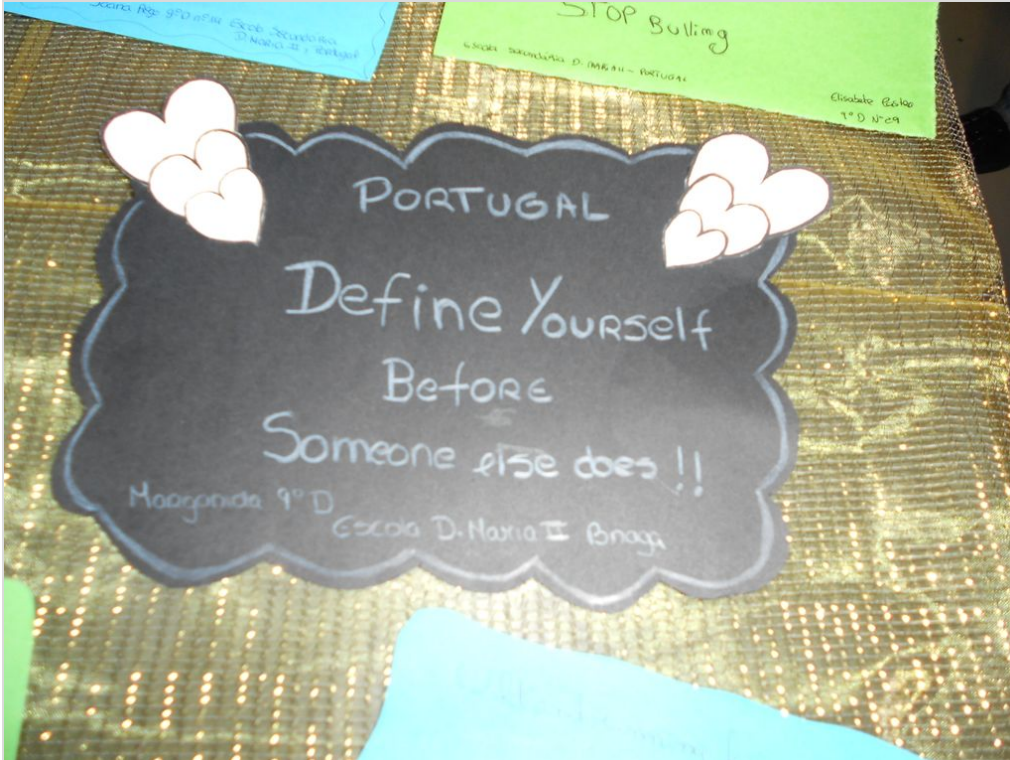 Joana 9º D nº14 Escola Secundária
D. Maria II, Portugal
STOP Bulling
Escola Secundária D. MARIA II - PORTUGAL
Elisabete
9º D Nº
PORTUGAL
Define Yourself
Before
Someone else does !!
Margarida 9º D
Escola D. Maria II Braga